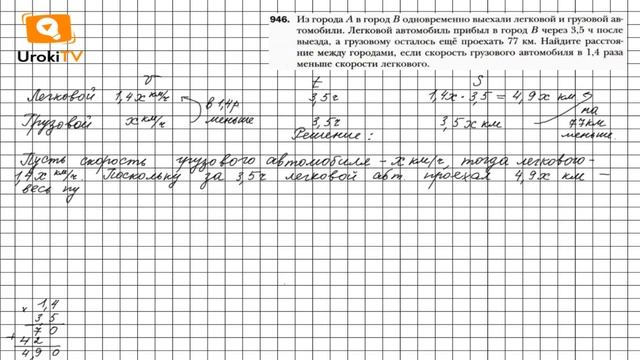 946. Из города A в город B одновременно выехали легковой и грузовой ав-
томобили. Легковой автомобиль прибыл в город B через 3,5 ч после
выезда, а грузовому осталось ещё проехать 77 км. Найдите расстоя-
ние между городами, если скорость грузового автомобиля в 1,4 раза
меньше скорости легкового.
UrokiTV
v t S
Легковой 1,4x км/ч 3,5ч 1,4x · 3,5 = 4,9x км
в 1,4р
меньше
на
77км
меньше
Грузовой x км/ч 3,5ч 3,5x км
Решение:
Пусть скорость грузового автомобиля - x км/ч, тогда легкового -
1,4x км/ч. Поскольку за 3,5ч легковой авт проехал 4,9x км —
весь пу
× 1,4
3,5
70
+ 42
4,90